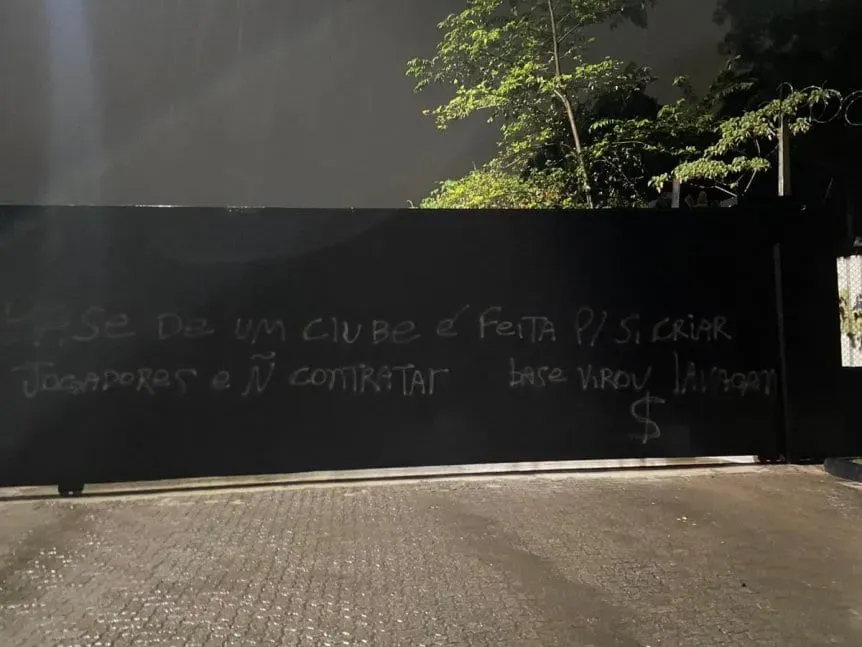 BASE DE UM CLUBE É FEITA P/ SI CRIAR
JOGADORES E Ñ CONTRATAR BASE VIROU LAVAGEM
$